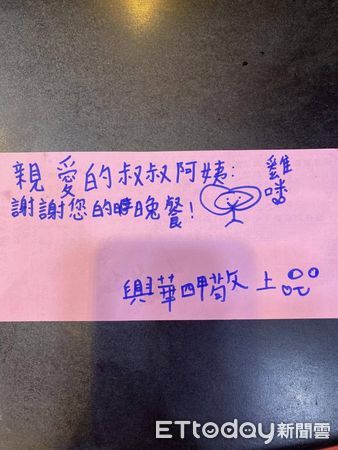 親愛的叔叔阿姨:
謝謝您的晚餐!
雞
興華四甲敬上
ETtoday新聞雲